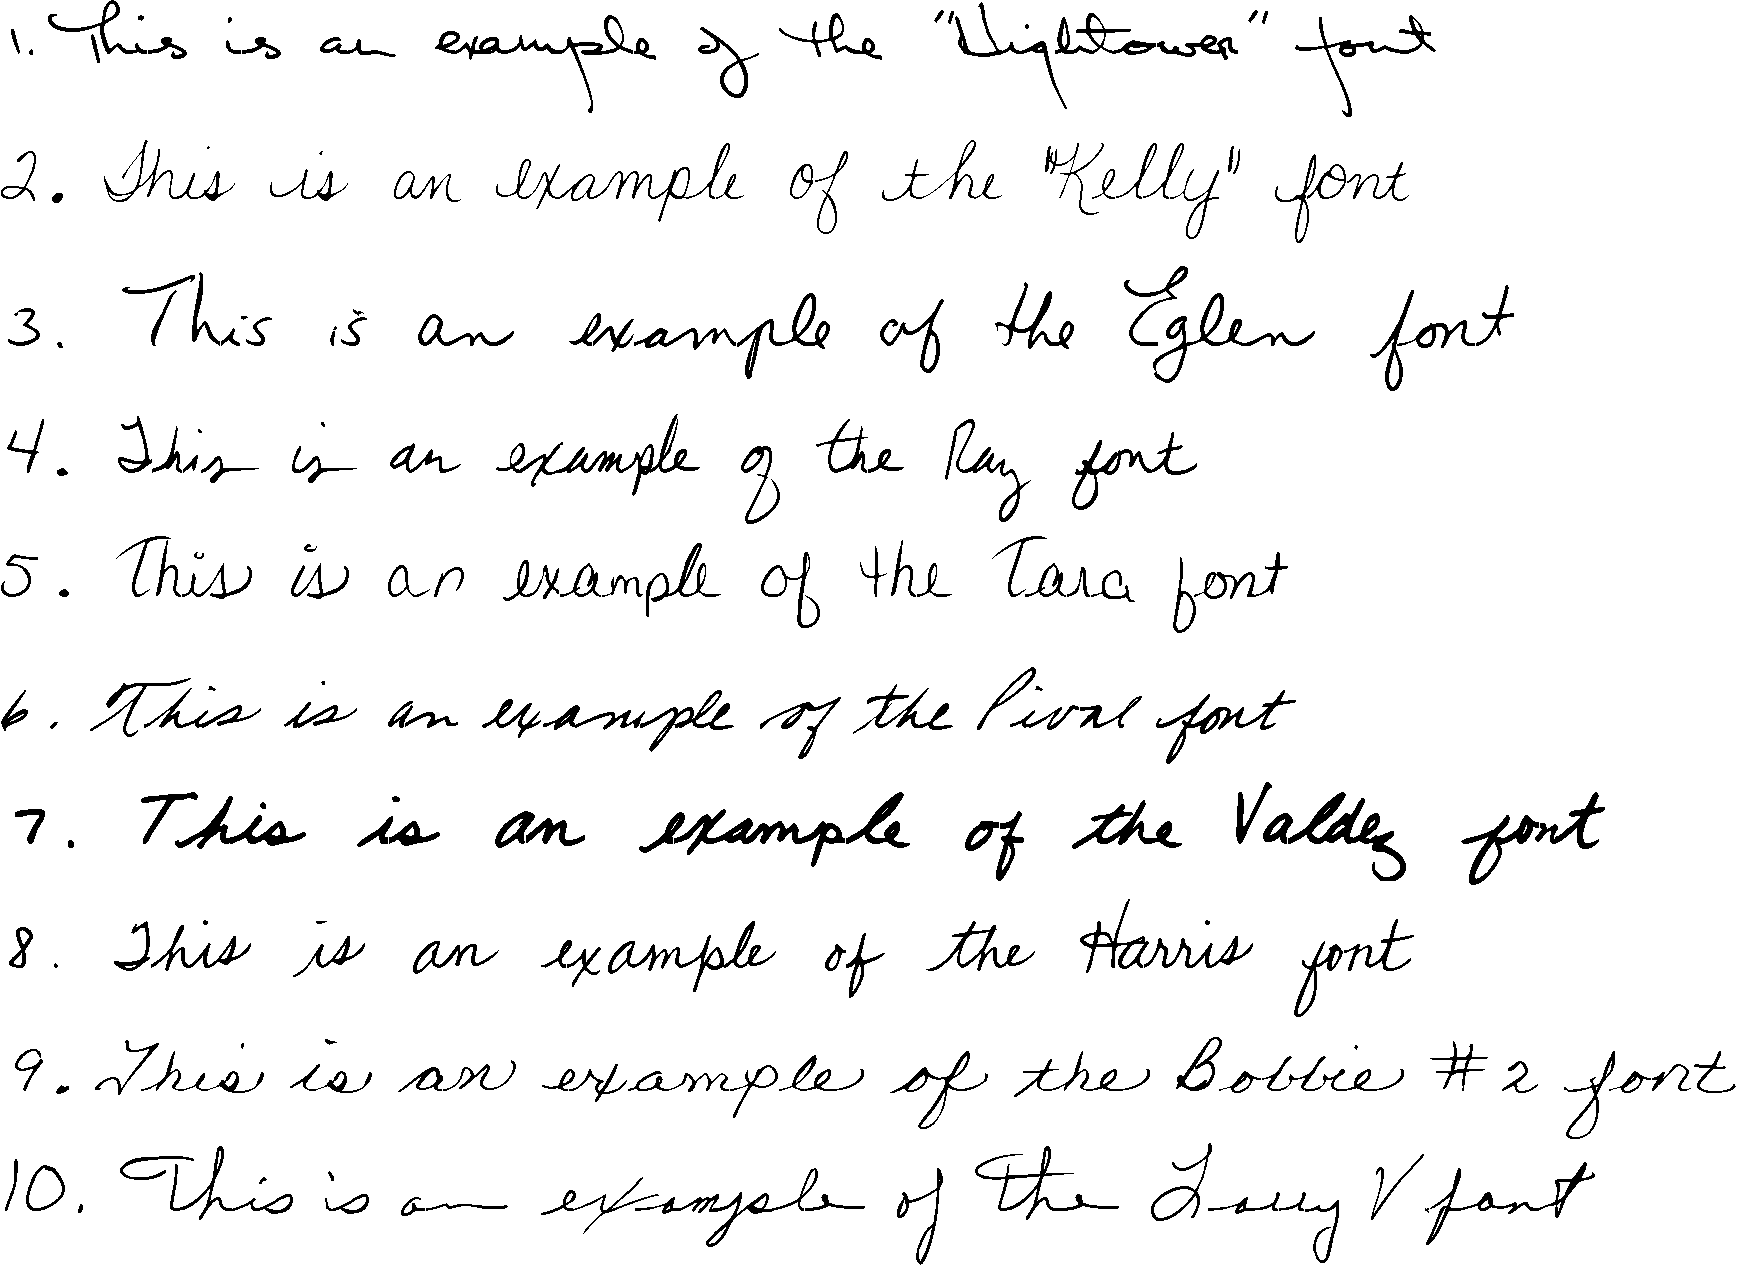 1. This is an example of the "Hightower" font
2. This is an example of the "Kelly" font
3. This is an example of the Eglen font
4. This is an example of the Ray font
5. This is an example of the Tara font
6. This is an example of the Pival font
7. This is an example of the Valdez font
8. This is an example of the Harris font
9. This is an example of the Bobbie #2 font
10. This is an example of The Larry V font